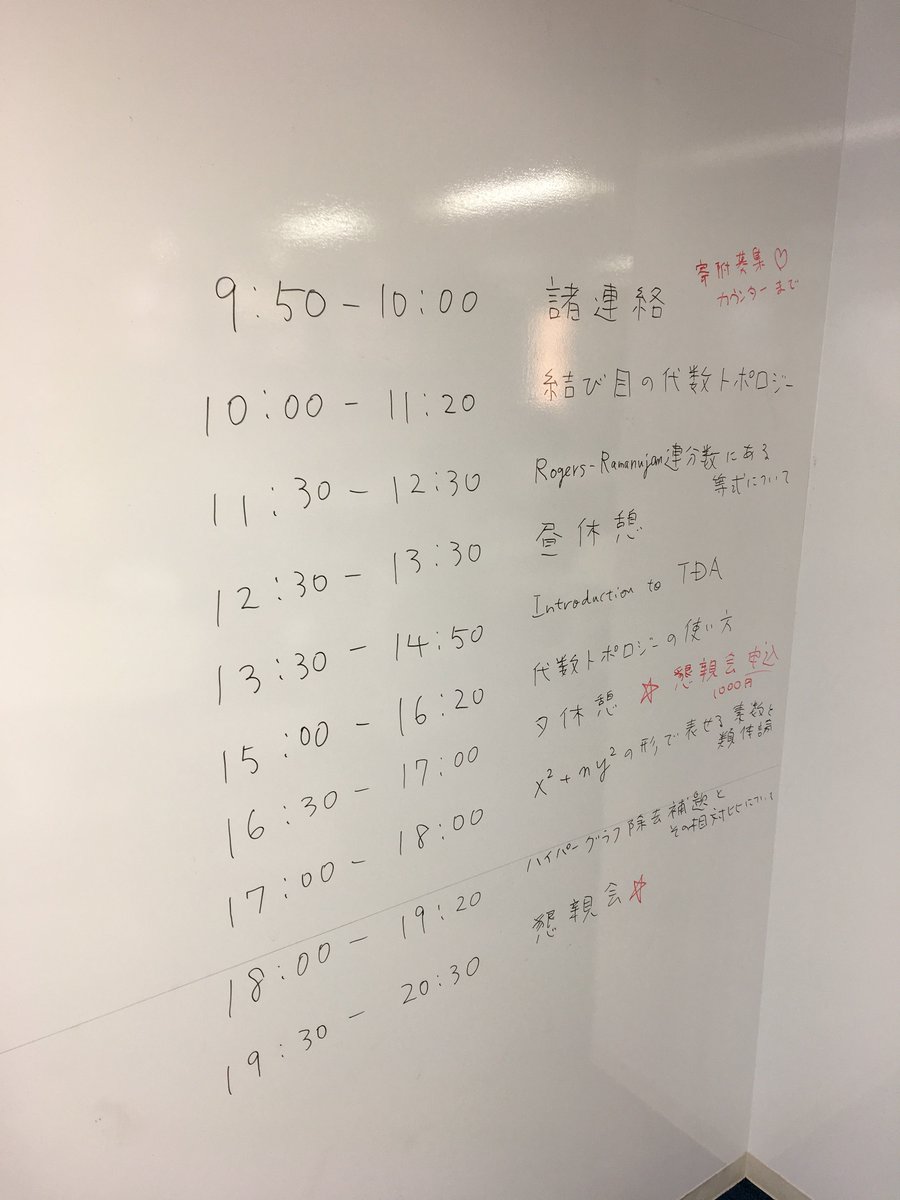 9:50 - 10:00 諸連絡
寄附募集♡
カウンターまで
10:00 - 11:20 結び目の代数トポロジー
11:30 - 12:30 Rogers-Ramanujan連分数にある
等式について
12:30 - 13:30 昼休憩
13:30 - 14:50 Introduction to TDA
15:00 - 16:20 代数トポロジーの使い方
16:30 - 17:00 夕休憩 ☆ 懇親会申込
1000円
17:00 - 18:00 x²+ny²の形で表せる素数と
類体論
18:00 - 19:20 ハイパーグラフ除去補題と
その相対化について
19:30 - 20:30 懇親会☆